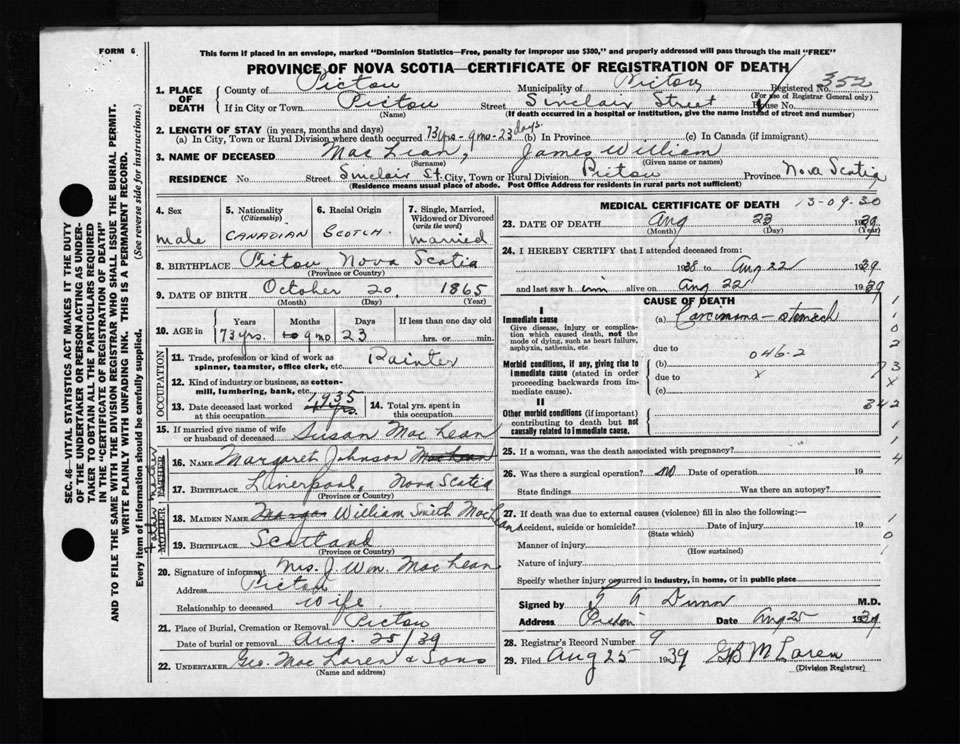 FORM 6.
This form if placed in an envelope, marked "Dominion Statistics—Free, penalty for improper use $300," and properly addressed will pass through the mail "FREE"
PROVINCE OF NOVA SCOTIA—CERTIFICATE OF REGISTRATION OF DEATH
1. PLACE OF DEATH
County of Pictou Municipality of Pictou Registered No. 352
(For use of Registrar General only)
If in City or Town Pictou Street Sinclair Street House No.
(Name) (If death occurred in a hospital or institution, give the name instead of street and number)
2. LENGTH OF STAY (in years, months and days)
(a) In City, Town or Rural Division where death occurred 73 yrs - 9 mo - 23 days. (b) In Province (c) In Canada (if immigrant)
3. NAME OF DECEASED Mac Lean, James William
(Surname) (Given name or names)
RESIDENCE No. Street Sinclair St. City, Town or Rural Division Pictou Province Nova Scotia
(Residence means usual place of abode. Post Office Address for residents in rural parts not sufficient)
4. Sex
male
5. Nationality
(Citizenship)
CANADIAN
6. Racial Origin
SCOTCH
7. Single, Married, Widowed or Divorced
(write the word)
married
8. BIRTHPLACE Pictou Nova Scotia
(Province or Country)
9. DATE OF BIRTH October 20, 1865
(Month) (Day) (Year)
10. AGE in
Years Months Days If less than one day old
73 yrs. 9 mo 23 hrs. or min.
OCCUPATION
11. Trade, profession or kind of work as spinner, teamster, office clerk, etc. Painter
12. Kind of industry or business, as cotton-mill, lumbering, bank, etc.
13. Date deceased last worked at this occupation 1935
14. Total yrs. spent in this occupation
15. If married give name of wife or husband of deceased Susan Mac Lean
FATHER
16. NAME Margaret Johnson MacLean
17. BIRTHPLACE Liverpool, Nova Scotia
(Province or Country)
MOTHER
18. MAIDEN NAME William Smith MacLean
19. BIRTHPLACE Scotland
(Province or Country)
20. Signature of informant Mrs. J. Wm. Mac Lean
Address Pictou
Relationship to deceased wife
21. Place of Burial, Cremation or Removal Pictou
Date of burial or removal Aug. 25/39
22. UNDERTAKER Geo. Mac Laren & Sons
(Name and address)
MEDICAL CERTIFICATE OF DEATH
13-09-30
23. DATE OF DEATH Aug 23 1939
(Month) (Day) (Year)
24. I HEREBY CERTIFY that I attended deceased from:
1938 to Aug 22 1939
and last saw him alive on Aug 22 1939
CAUSE OF DEATH
I
Immediate cause
Give disease, injury or complication which caused death, not the mode of dying, such as heart failure, asphyxia, asthenia, etc.
(a) Carcinoma - stomach
due to
046.2
Morbid conditions, if any, giving rise to immediate cause (stated in order proceeding backwards from immediate cause).
(b)
due to x
(c)
II
Other morbid conditions (if important) contributing to death but not causally related to immediate cause.
342
25. If a woman, was the death associated with pregnancy?
26. Was there a surgical operation? no Date of operation 19
State findings Was there an autopsy?
27. If death was due to external causes (violence) fill in also the following:—
Accident, suicide or homicide? Date of injury 19
(State which)
Manner of injury
(How sustained)
Nature of injury
Specify whether injury occurred in industry, in home, or in public place
Signed by Dunn M.D.
Address Date Aug 25 1939
28. Registrar's Record Number 9
29. Filed Aug 25 1939 GB McLaren
(Division Registrar)
SEC. 46—VITAL STATISTICS ACT MAKES IT THE DUTY
OF THE UNDERTAKER OR PERSON ACTING AS UNDERTAKER TO OBTAIN ALL THE PARTICULARS REQUIRED
IN THE "CERTIFICATE OF REGISTRATION OF DEATH"
AND TO FILE THE SAME WITH THE DIVISION REGISTRAR WHO SHALL ISSUE THE BURIAL PERMIT.
WRITE PLAINLY WITH UNFADING INK. THIS IS A PERMANENT RECORD.
Every item of information should be carefully supplied. (See reverse side for instructions.)